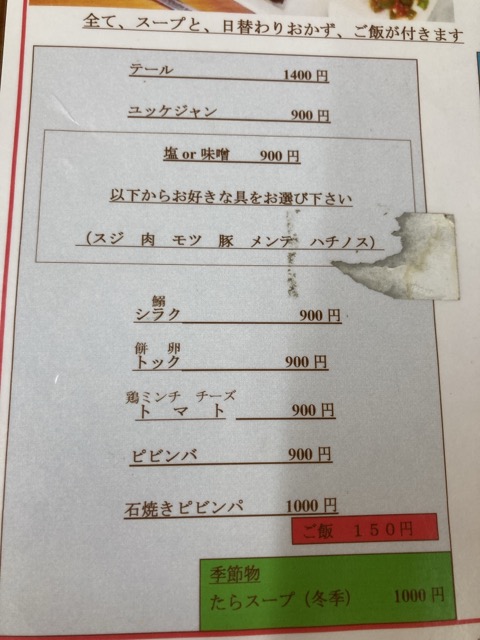 全て、スープと、日替わりおかず、ご飯が付きます
テール 1400円
ユッケジャン 900円
塩or味噌 900円
以下からお好きな具をお選び下さい
(スジ 肉 モツ 豚 メンテ ハチノス)
鰯
シラク 900円
餅 卵
トック 900円
鶏ミンチ チーズ
トマト 900円
ピビンバ 900円
石焼きピビンパ 1000円
ご飯 150円
季節物
たらスープ(冬季) 1000円